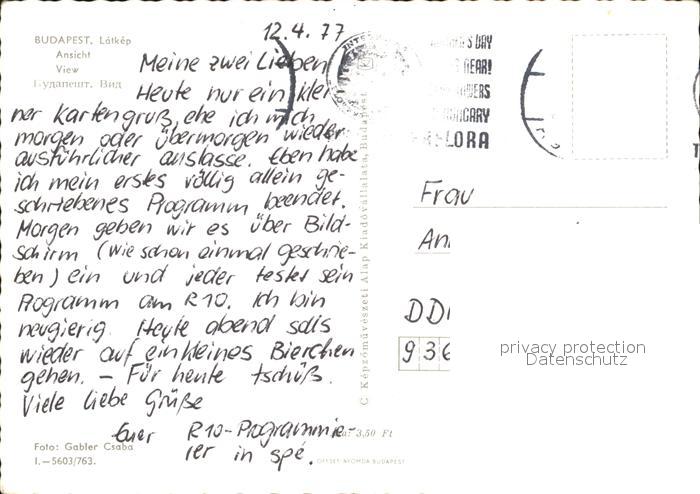 12.4.77
BUDAPEST, Látkép
Ansicht
View
Будапешт. Вид
Meine zwei Lieben!
Heute nur ein klei-
ner Kartengruß, ehe ich mich
morgen oder übermorgen wieder
ausführlicher auslasse. Eben habe
ich mein erstes völlig allein ge-
schriebenes Programm beendet.
Morgen geben wir es über Bild-
schirm (wie schon einmal geschrie-
ben) ein und jeder testet sein
Programm am R10. Ich bin
neugierig. Heute abend solls
wieder auf ein kleines Bierchen
gehen. – Für heute tschüß.
Viele liebe Grüße
Euer R10-Programmie-
rer in spé.
Foto: Gabler Csaba
I.—5603/763.
3,50 Ft
OFFSET-NYOMDA BUDAPEST
© Képzőművészeti Alap Kiadóvállalata, Budapest
DAY
LORA
Frau
An
DD
936
privacy protection
Datenschutz